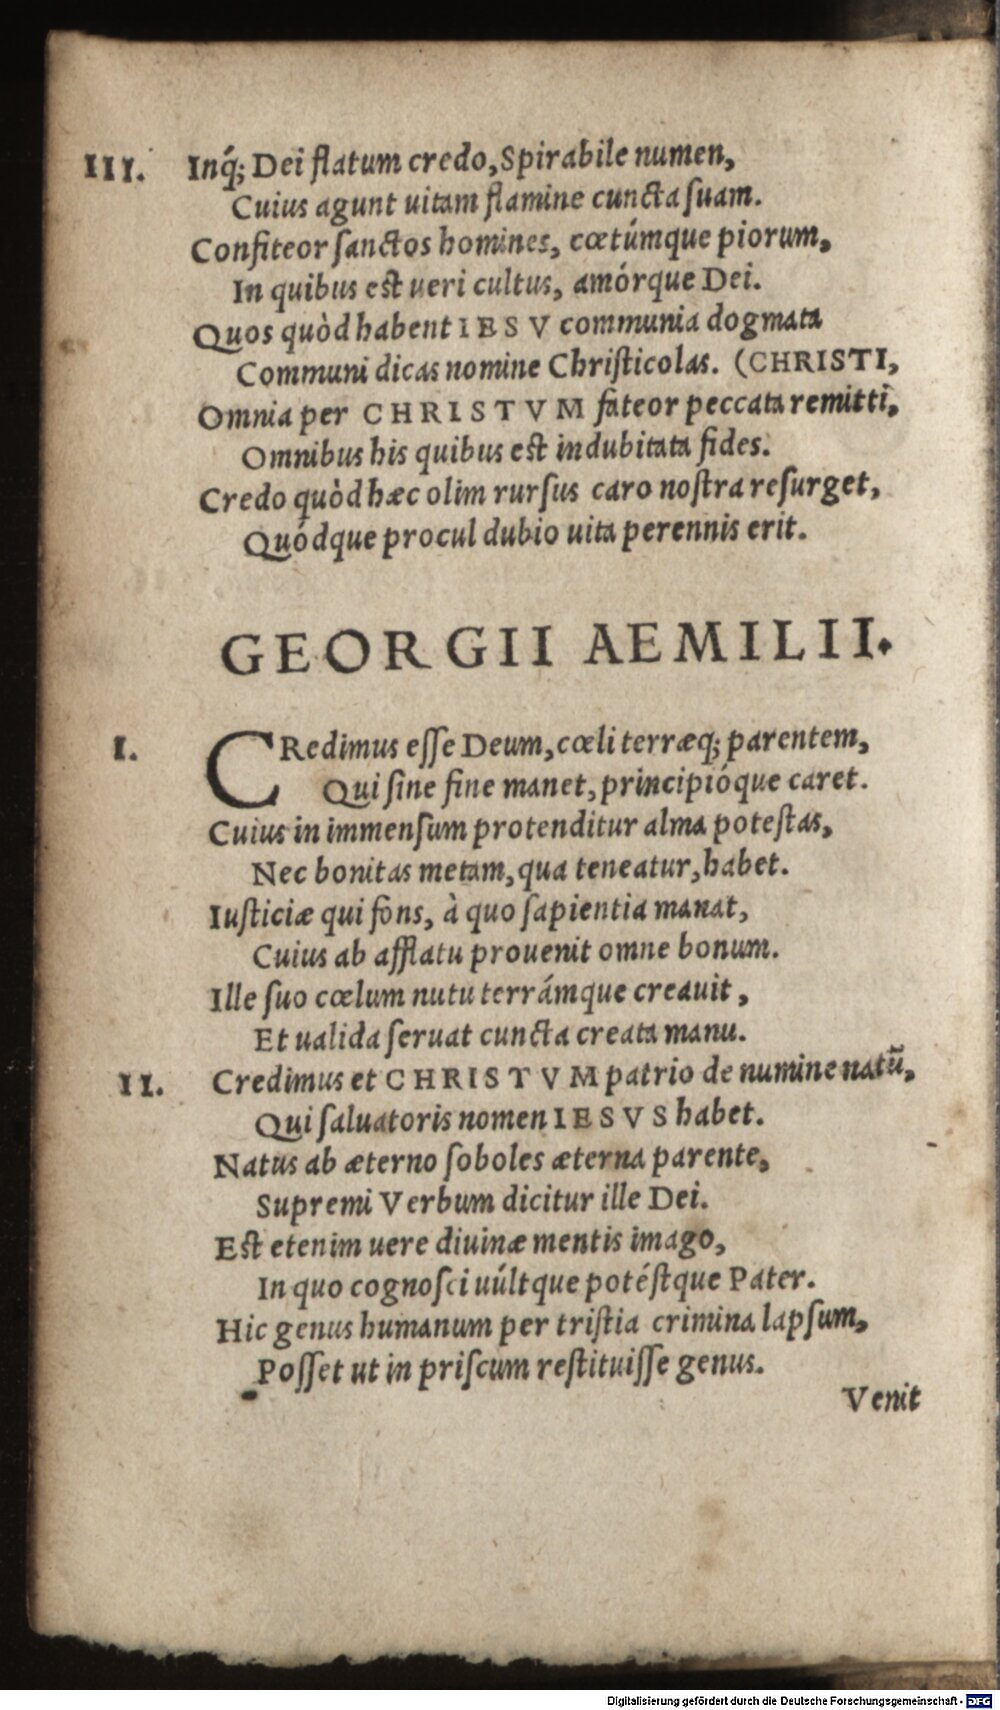 III. Inq́; Dei flatum credo, Spirabile numen,
Cuius agunt uitam flamine cuncta ſuam.
Confiteor ſanctos homines, cœtúmque piorum,
In quibus est ueri cultus, amórque Dei.
Quos quòd habent IESV communia dogmata
Communi dicas nomine Chriſticolas. (CHRISTI,
Omnia per CHRISTVM fateor peccata remitti,
Omnibus his quibus est indubitata fides.
Credo quòd hæc olim rurſus caro noſtra reſurget,
Quódque procul dubio uita perennis erit.
GEORGII AEMILII.
I. CRedimus eſſe Deum, cœli terræq; parentem,
Qui ſine fine manet, principióque caret.
Cuius in immenſum protenditur alma poteſtas,
Nec bonitas metam, qua teneatur, habet.
Iuſticiæ qui fons, à quo ſapientia manat,
Cuius ab afflatu prouenit omne bonum.
Ille ſuo cœlum nutu terrámque creauit,
Et ualida ſeruat cuncta creata manu.
II. Credimus et CHRISTVM patrio de numine natũ,
Qui ſaluatoris nomen IESVS habet.
Natus ab æterno ſoboles æterna parente,
Supremi Verbum dicitur ille Dei.
Est etenim uere diuinæ mentis imago,
In quo cognoſci uúltque potéſtque Pater.
Hic genus humanum per triſtia crimina lapſum,
Poſſet ut in priſcum reſtituiſſe genus.
Venit
Digitalisierung gefördert durch die Deutsche Forschungsgemeinschaft - DFG